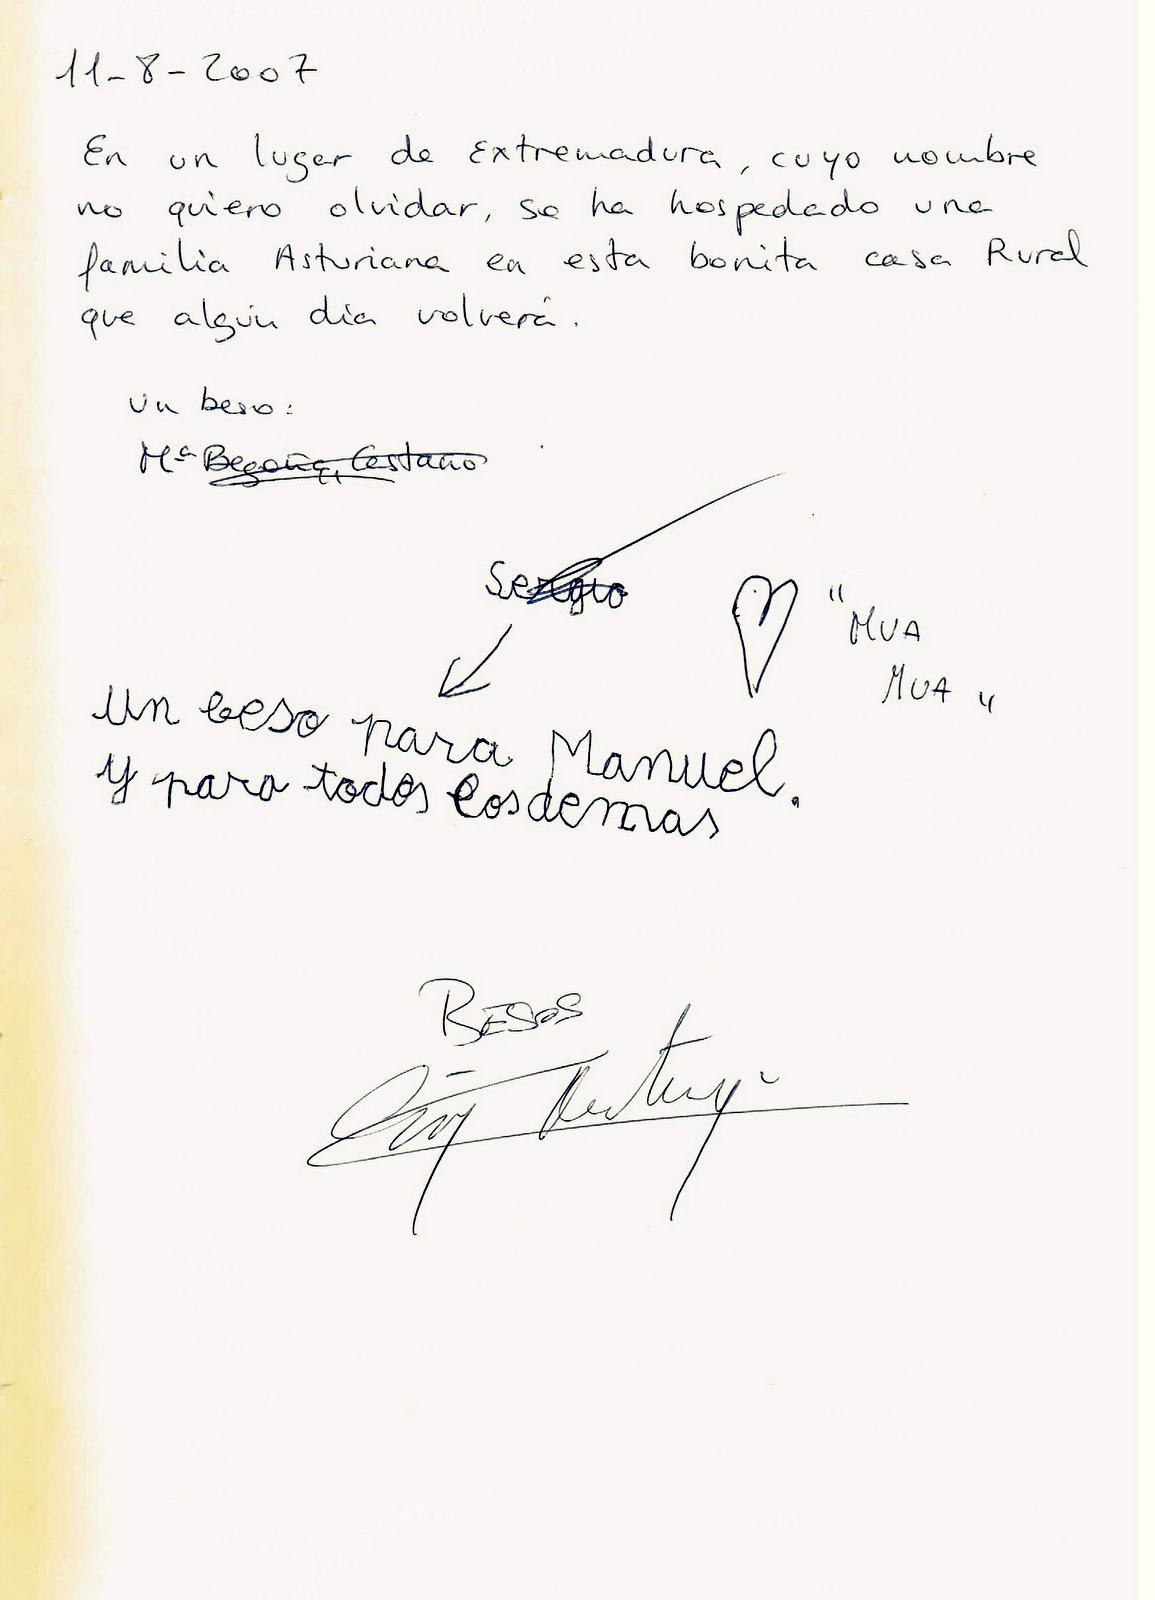 11-8-2007
En un lugar de Extremadura, cuyo nombre
no quiero olvidar, se ha hospedado una
familia Asturiana en esta bonita casa Rural
que algún día volverá.
Un beso:
Mª Begoña Castaño
Sergio
"MUA
MUA"
Un beso para Manuel.
Y para todos losdemas
BESOS